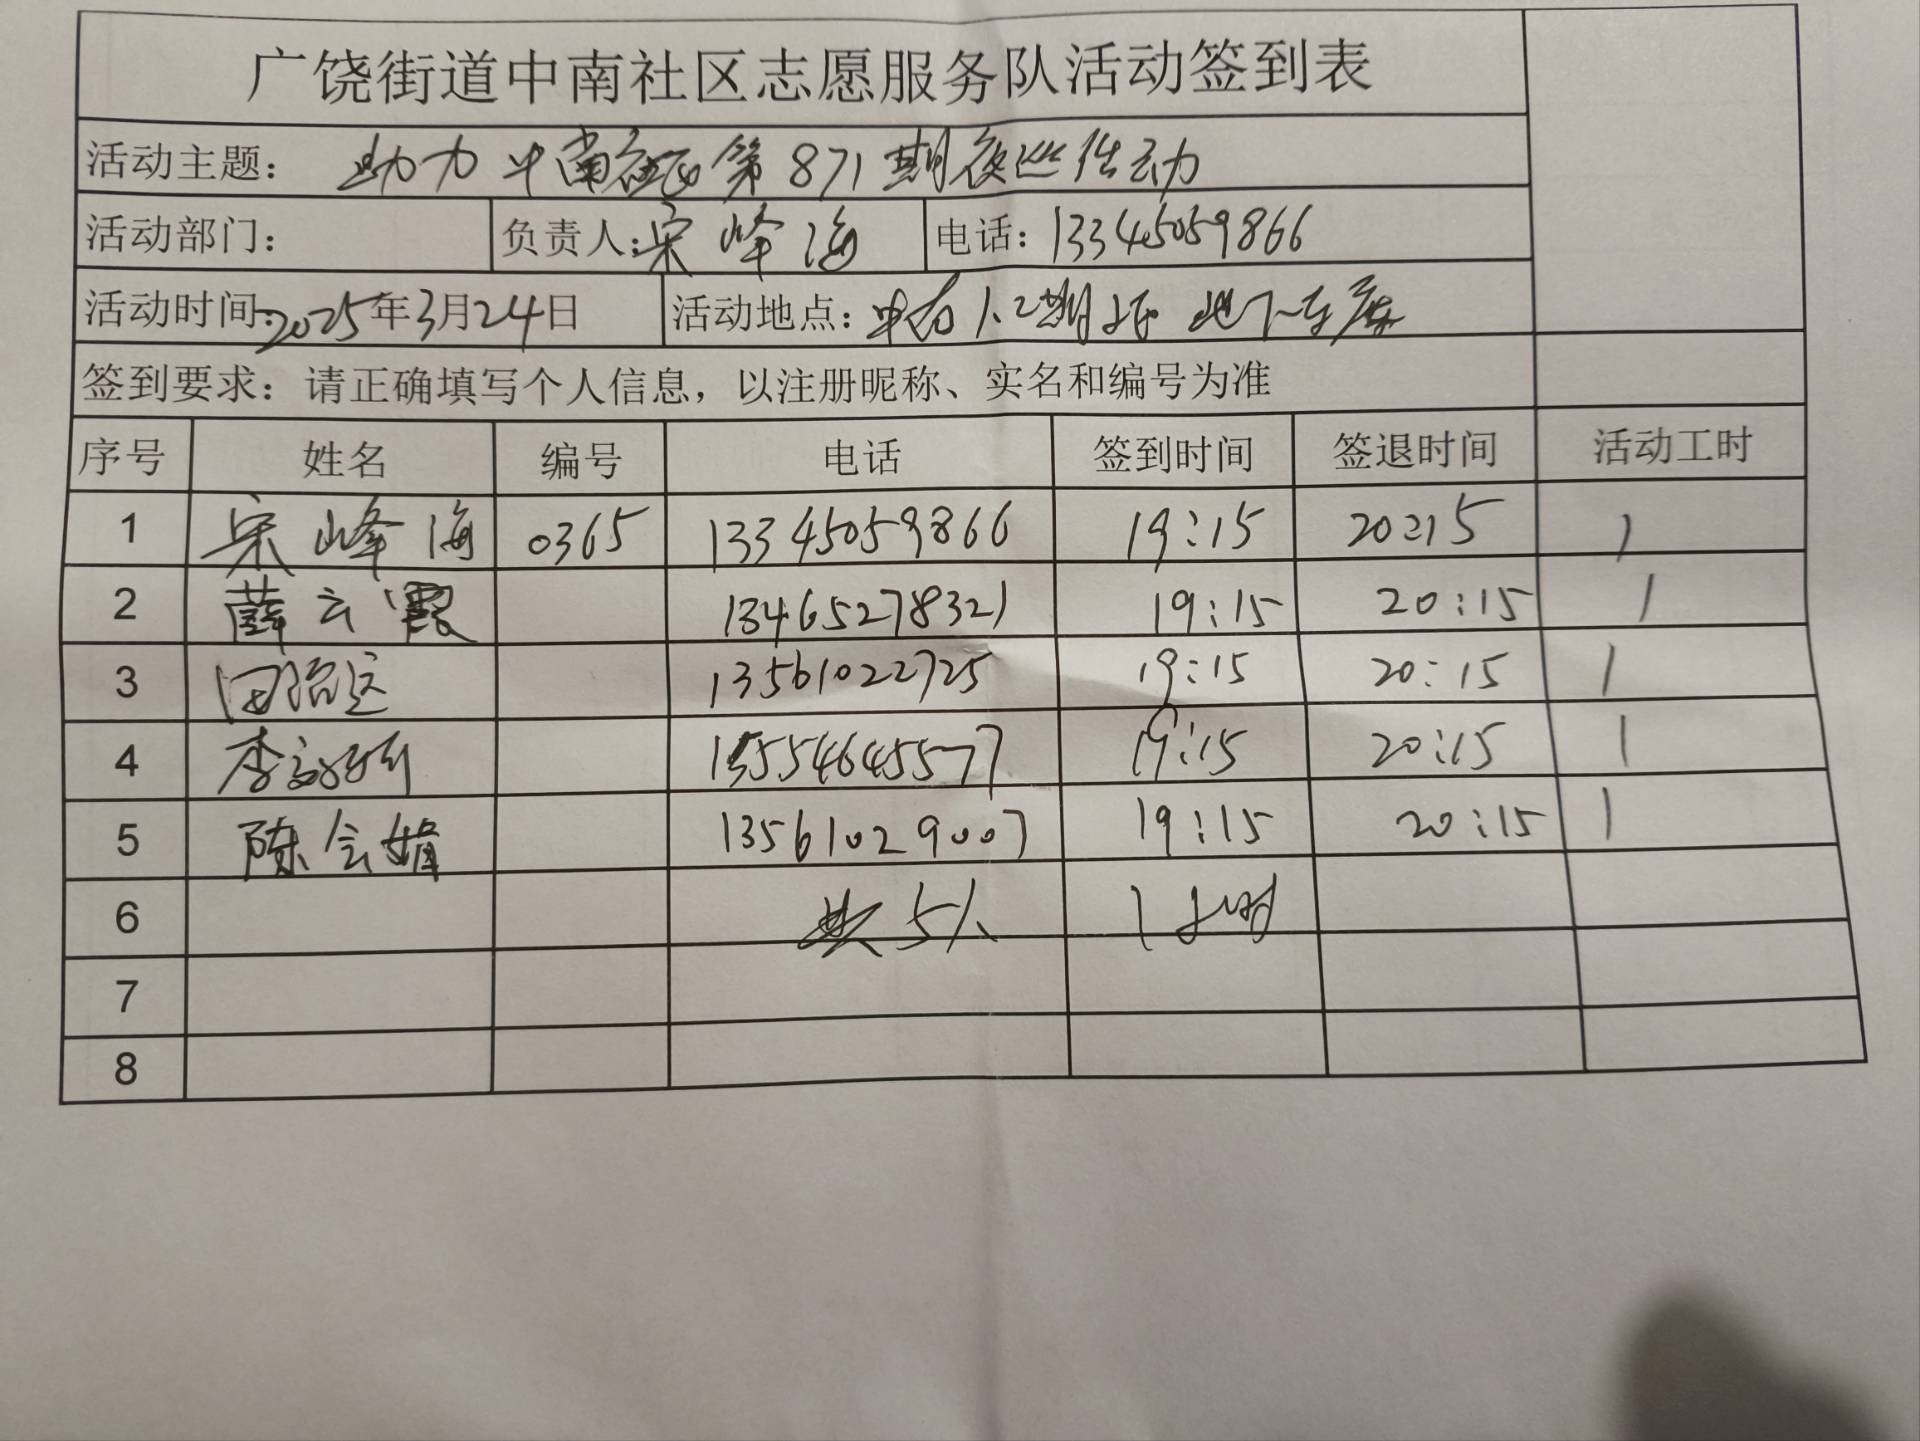 广饶街道中南社区志愿服务队活动签到表
活动主题： 助力中南社区第871期夜巡活动
活动部门： 负责人：宋峰海 电话：13345059866
活动时间：2025年3月24日 活动地点：中南1.2期 地下车库
签到要求：请正确填写个人信息，以注册昵称、实名和编号为准
序号 姓名 编号 电话 签到时间 签退时间 活动工时
1 宋峰海 0365 13345059866 19:15 20:15 1
2 薛云霞 13465278321 19:15 20:15 1
3 田 13561022725 19:15 20:15 1
4 李 15554645577 19:15 20:15 1
5 陈会娟 13561029007 19:15 20:15 1
6 共5人 1小时
7
8